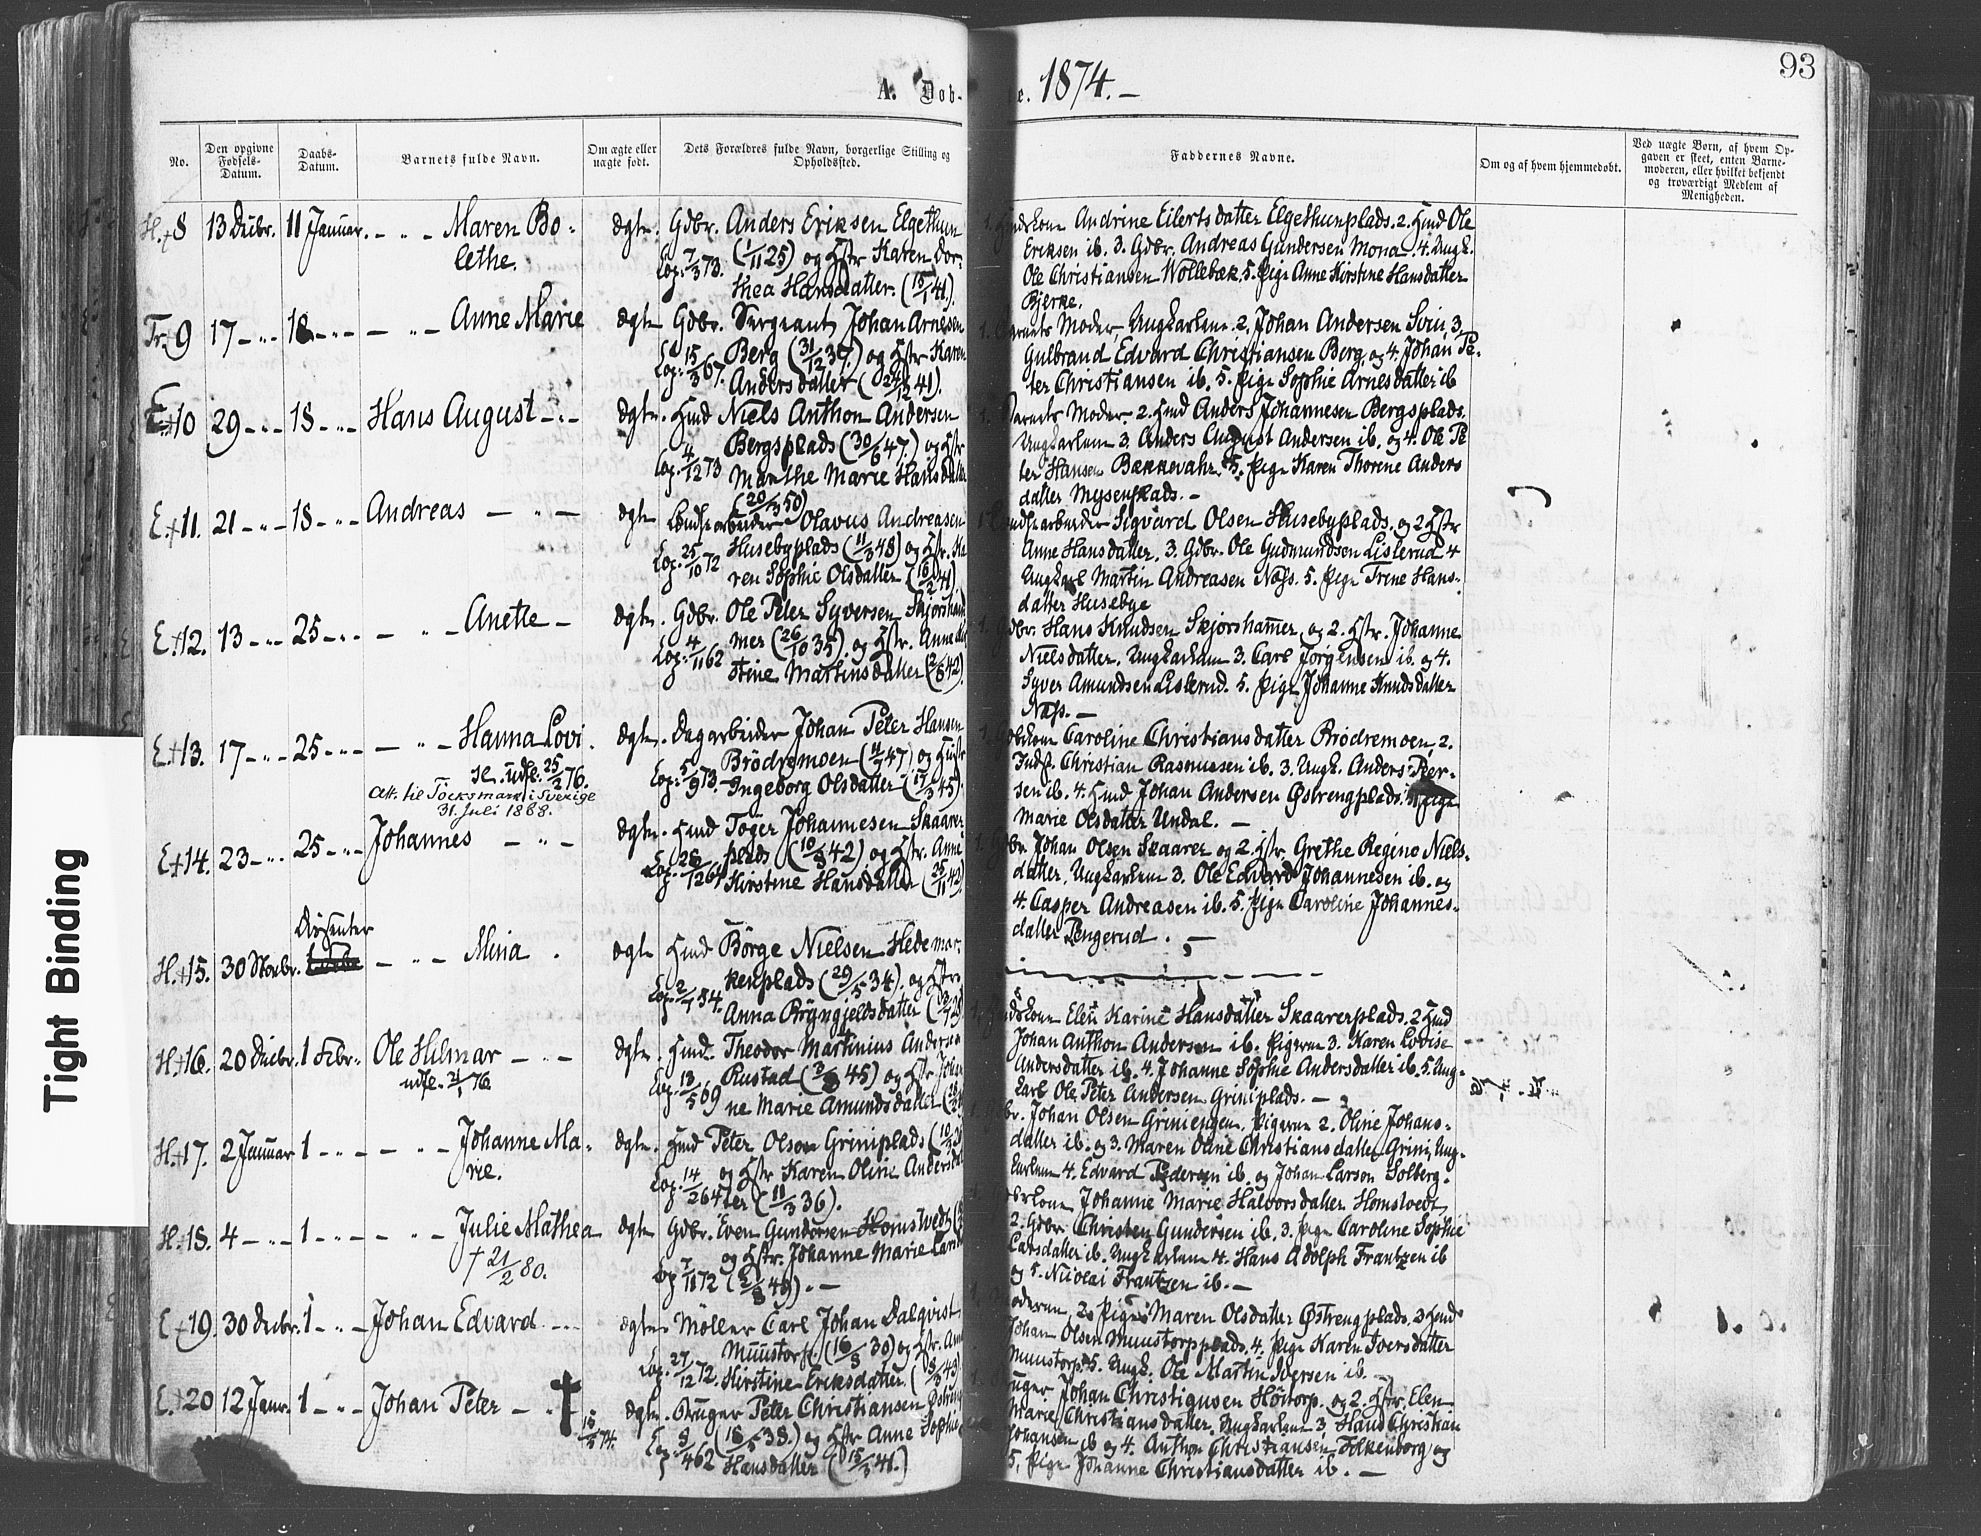 93
A. Døb- e. 1874.–
No.
Den opgivne Fødsels-Datum.
Daabs-Datum.
Barnets fulde Navn.
Om ægte eller uægte født.
Dets Forældres fulde Navn, borgerlige Stilling og Opholdssted.
Faddernes Navne.
Om og af hvem hjemmedøbt.
Ved uægte Børn, af hvem Op-
gaven er skeet, enten Barne-
moderen, eller hvilket bekjendt
og troværdigt Medlem af
Menigheden.
H. 8 13 Decbr. 11 Januar. – „ – Maren Bo-
lethe.
ægte. Gdbr. Anders Eriksen Elgethun
Cop: 7/3 73. (1/11 25) og Hstr Karen Dor-
thea Hansdatter. (15/1 41).
1. Andrine Eilertsdatter Elgethunplads. 2. Hmd Ole
Eriksen ib. 3. Gdbr. Andreas Gundersen Mona. 4. Ungk.
Ole Christiansen Wollebæk. 5. Pige Anne Kirstine Hansdatter
Bjerke.
Tr. 9 17 – „ – 18 – „ – – „ – Anne Marie
ægte Gdbr. Sergeant Johan Arnesen
Cop: 15/3 67. Berg (31/12 37.) og Hstr Karen
Andersdatter (24/12 41).
1. Barnets Moder, Ungkarlene 2. Johan Andersen Svin, 3.
Gulbrand Edvard Christiansen Berg, og 4. Johan Pe-
ter Christiansen ib. 5. Pige Sophie Arnesdatter ib
E. 10 29 – „ – 18 – „ – Hans August – „ –
ægte. Hmd Niels Anthon Andersen
Bergsplads (30/6 47.) og Hstr
Cop: 4/12 73 Marthe Marie Hansdatter
(20/3 50)
1. Barnets Moder. 2. Hmd Anders Johannesen Bergsplads.
Ungkarlene 3. Anders August Andersen ib. og 4. Ole Pe-
ter Hansen Bækkevahr. 5. Pige Karen Thorene Anders
datter Mysenplads. –
E. 11. 21 – „ – 18 – „ – Andreas – „ –
ægte Olavus Andreasen
Cop: 25/10 72 Husebyplads (11/3 48) og Hstr. Ka
ren Sophie Olsdatter (16/2 41)
Sigvard Olsen Husebyplads. og 2 Hstr
Anne Hansdatter. 3. Gdbr. Ole Gudmundsen Lislerud 4
Ungkarl Martin Andreasen Næss. 5. Pige Trine Hans-
datter Husebye
E. 12. 13 – „ – 25 – „ – – „ – Anette –
ægte. Gdbr. Ole Peter Syversen Skjørsham
Cop: 4/11 62 mer (26/10 35) og Hstr. Anne
Stine Martinsdatter (2/8 42).
1. Gdbr. Hans Knudsen Skjørshamer og 2. Hstr. Johanne
Nielsdatter. Ungkarlene 3. Carl Jørgensen ib. og 4.
Syver Amundsen Lislerud. 5. Pige Johanne Knudsdatter
Næss. –
E. 13. 17 – „ – 25 – „ – – „ – Hanna Lovi-
se. udfl. 25/2 76.
Att. til Töcksmark i Sverige
31. Juli 1888.
ægte. Dagarbeider Johan Peter Hansen
Brødremoen (4/7 47) og Hustr
Cop: 5/9 73. Ingeborg Olsdatter (17/3 45).
1. Caroline Christiansdatter Brødremoen, 2.
Christian Rasmussen ib. 3. Ungk. Anders Peer-
sen ib. 4. Hmd Johan Andersen Østrengplads.
Marie Olsdatter Undal. –
E. 14. 23 – „ – 25 – „ – Johannes – „ –
ægte. Hmd Toger Johannesen Skaarer-
plads (10/3 42) og Hstr. Anne
Kirstine Hansdatter (25/11 42)
1. Gdbr. Johan Olsen Skaarer og 2. Hstr. Grethe Regine Niels-
datter. Ungkarlene 3. Ole Edvard Johannesen ib. og
4. Casper Andreasen ib. 5. Pige Caroline Johannes-
datter Pengerud. –
H. 15. 30 Novbr. Dissenter – „ – Mina
ægte Hmd Børge Nielsen Hedemar-
kenplads (29/5 34). og Hstr.
Anna Bryngjeldsdatter
H. 16. 20 Decbr. 1 Febr. Ole Hilmar – „ –
udfl. 76.
ægte. Hmd. Theodor Martinius Andersen
Cop: 13/5 69 Rustad (45) og Hstr Johan
ne Marie Amundsdatter
Elen Karine Hansdatter Skaarerplads. 2 Hmd
Johan Anthon Andersen ib. Pigerne 3. Karen Lovise
Andersdatter ib. 4. Johanne Sophie Andersdatter ib. 5. Ung-
karl Ole Peter Andersen Griniplads. –
H. 17. 2 Januar 1 – „ – – „ – Johanne Ma-
rie.
ægte. Hmd Peter Olsen Griniplads
Cop: 14/2 64 og Hstr Karen Oline Andersdat
ter (11/3 36).
Johan Olsen Griniengen. Pigerne 2. Oline Johans-
datter ib. og 3. Maren Oline Christiansdatter Grini, Ung-
karlene 4. Edvard Pedersen ib. og Johan Larson Solberg.
H. 18. 4 – „ – 1 – „ – – „ – Julie Mathea
† 21/2 80.
ægte Gdbr. Even Gundersen Homstvedt
og Hstr. Johanne Marie Lars
Cop 7/11 72 (2/8 49). –
Johanne Marie Halvorsdatter Homstvedt,
2. Gdbr. Christen Gundersen ib. 3. Pige Caroline Sophie
Larsdatter ib. Ungkarlene 4. Hans Adolph Frantzen ib
og 5. Nicolai Frantzen ib. –
E. 19. 30 Decbr. 1 – „ – Johan Edvard – „ –
ægte. Møller Carl Johan Dalqvist
Muustorp. (16/8 30) og Hstr. Ann
Cop. 27/12 72. Kirstine Eriksdatter (49)
Moderen, 2. Pige Maren Olsdatter Østrengplads. 3 Hmd
Johan Olsen Muustorpplads. 4. Pige Karen Iversdatter
Muustorp. 5. Ungk. Ole Martin Iversen ib. –
E. 20 12 Janr. 1 – „ – Johan Peter – „ – †
15/5 74.
ægte. Bruger Peter Christiansen
8/4 62 (18/5 38) og Hstr Anne Sophie
Hansdatter (15/3 41.)
Bruger Johan Christiansen Høitorp. og 2. Hstr. Elen
Marie Christiansdatter. Ungkarlene 3. Hans Christian
Johansen ib og 4. Anthon Christiansen Folkenborg og
5. Pige Johanne Christiansdatter ib. –
Tight Binding